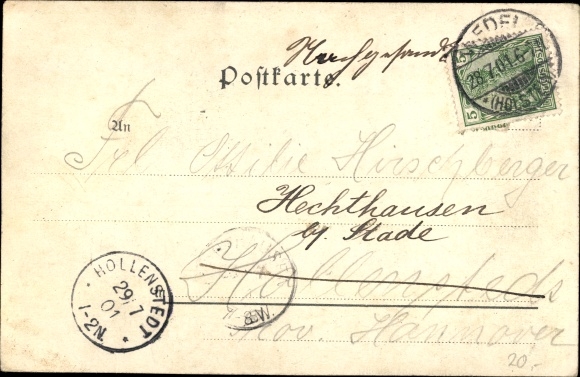 Nachgesandt
Postkarte.
5
WEDEL
28.7.01.6-
(HOLSTEIN)
An
Frl Ottilie Hirschberger
Hechthausen
by. Stade
Hollenstedt
Prov. Hannover
HOLLENSTEDT
29/7
01
1-2N.
*
20.-